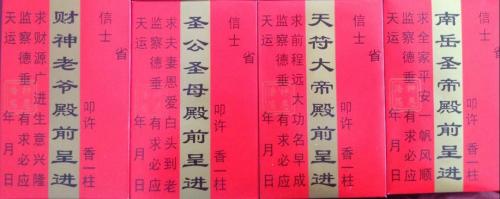 省
信士 叩许 香一柱
南岳圣帝殿前呈进
求全家平安一帆风顺
监察德垂 有求必应
天运 年 月 日
省
信士 叩许 香一柱
天符大帝殿前呈进
求前程远大功名早成
监察德垂 有求必应
天运 年 月 日
省
信士 叩许 香一柱
圣公圣母殿前呈进
求夫妻恩爱白头到老
监察德垂 有求必应
天运 年 月 日
省
信士 叩许 香一柱
财神老爷殿前呈进
求财源广进生意兴隆
监察德垂 有求必应
天运 年 月 日